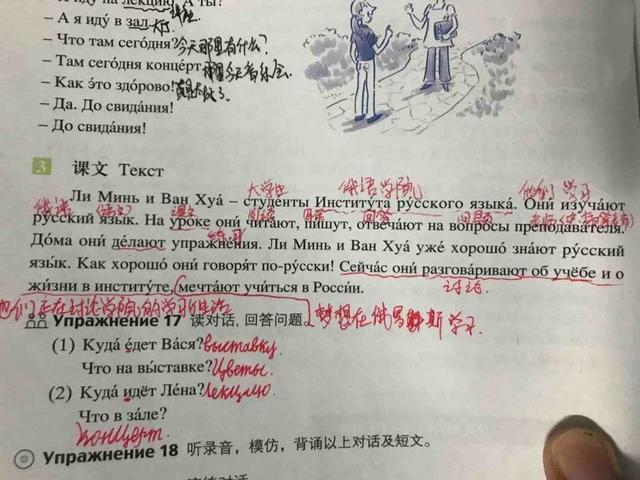 иду на лекцию. А ты?
– А я иду́ в зал.大厅
– Что там сего́дня?今天那里有什么?
– Там сего́дня конце́рт.那里今天音乐会.
– Как э́то здо́рово!真是太好了.
– Да. До свида́ния!
– До свида́ния!
3 课文 Текст
大学生 俄语学院 他们 学习
Ли Минь и Ван Хуа́ – студе́нты Институ́та ру́сского языка́. Они́ изуча́ют
俄语 课文 阅读 回答 问题
ру́сский язы́к. На уро́ке они́ чита́ют, пи́шут, отвеча́ют на вопро́сы преподава́теля.
练习
До́ма они́ де́лают упражне́ния. Ли Минь и Ван Хуа́ уже́ хорошо́ зна́ют ру́сский
язы́к. Как хорошо́ они́ говоря́т по-ру́сски! Сейча́с они́ разгова́ривают об учёбе и о
жи́зни в институ́те, мечта́ют учи́ться в Росси́и.
讨论
他们正在讨论学院的学习生活
梦想在俄罗斯学习.
Упражнение 17 读对话, 回答问题。
(1) Куда́ е́дет Ва́ся?выставку.
Что на вы́ставке?Цветы.
(2) Куда́ идёт Ле́на?Лекцию
Что в за́ле?
Концерт.
Упражнение 18 听录音，模仿，背诵以上对话及短文。